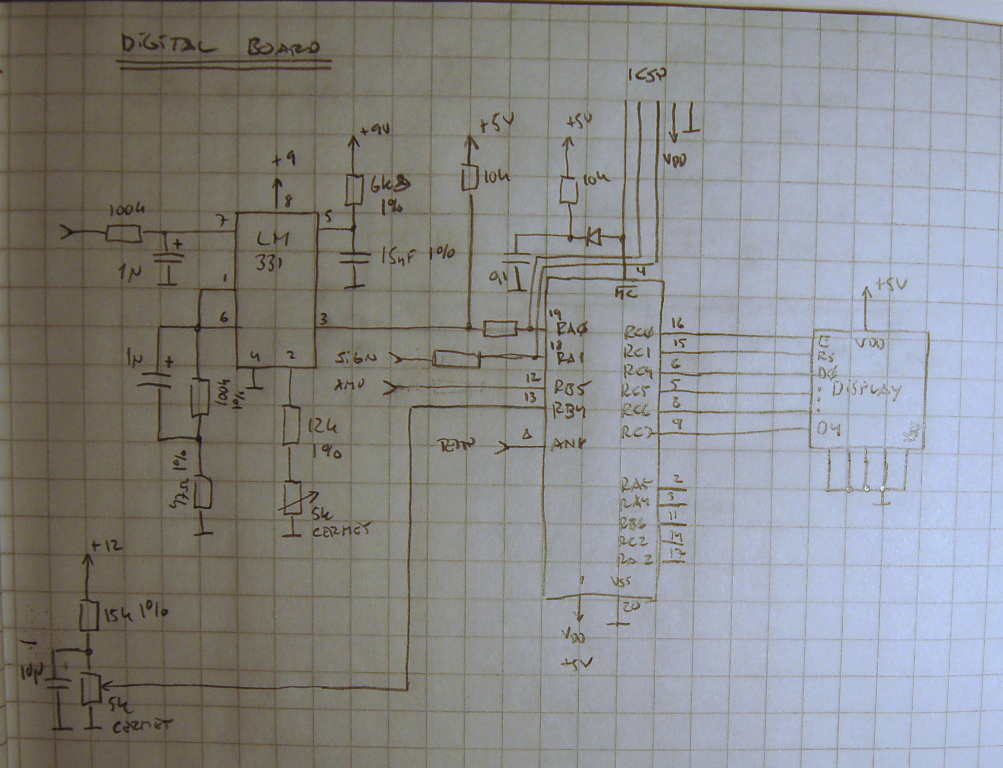 DIGITAL BOARD
ICSP
+9V
+5V
+5V
VDD
+9
8
10k
10k
6k8
1%
100k
7
5
LM
331
15nF 1%
1µ
+
0,1
4
MC
+5V
1
6
3
19
RA0
RC0
16
E
VDD
18
RA1
RC1
15
RS
RC4
6
D0
SIGN
1µ
+
4
2
12
RB5
RC5
5
DISPLAY
13
RB4
RC6
8
RC7
9
D4
100k
1%
12k
1%
8
AN8
47Ω 1%
RA5
2
RA4
3
5k
CERMET
RB6
11
RC2
+12
1
VSS
20
15k 1%
VDD
+5V
10µ
5k
CERMET